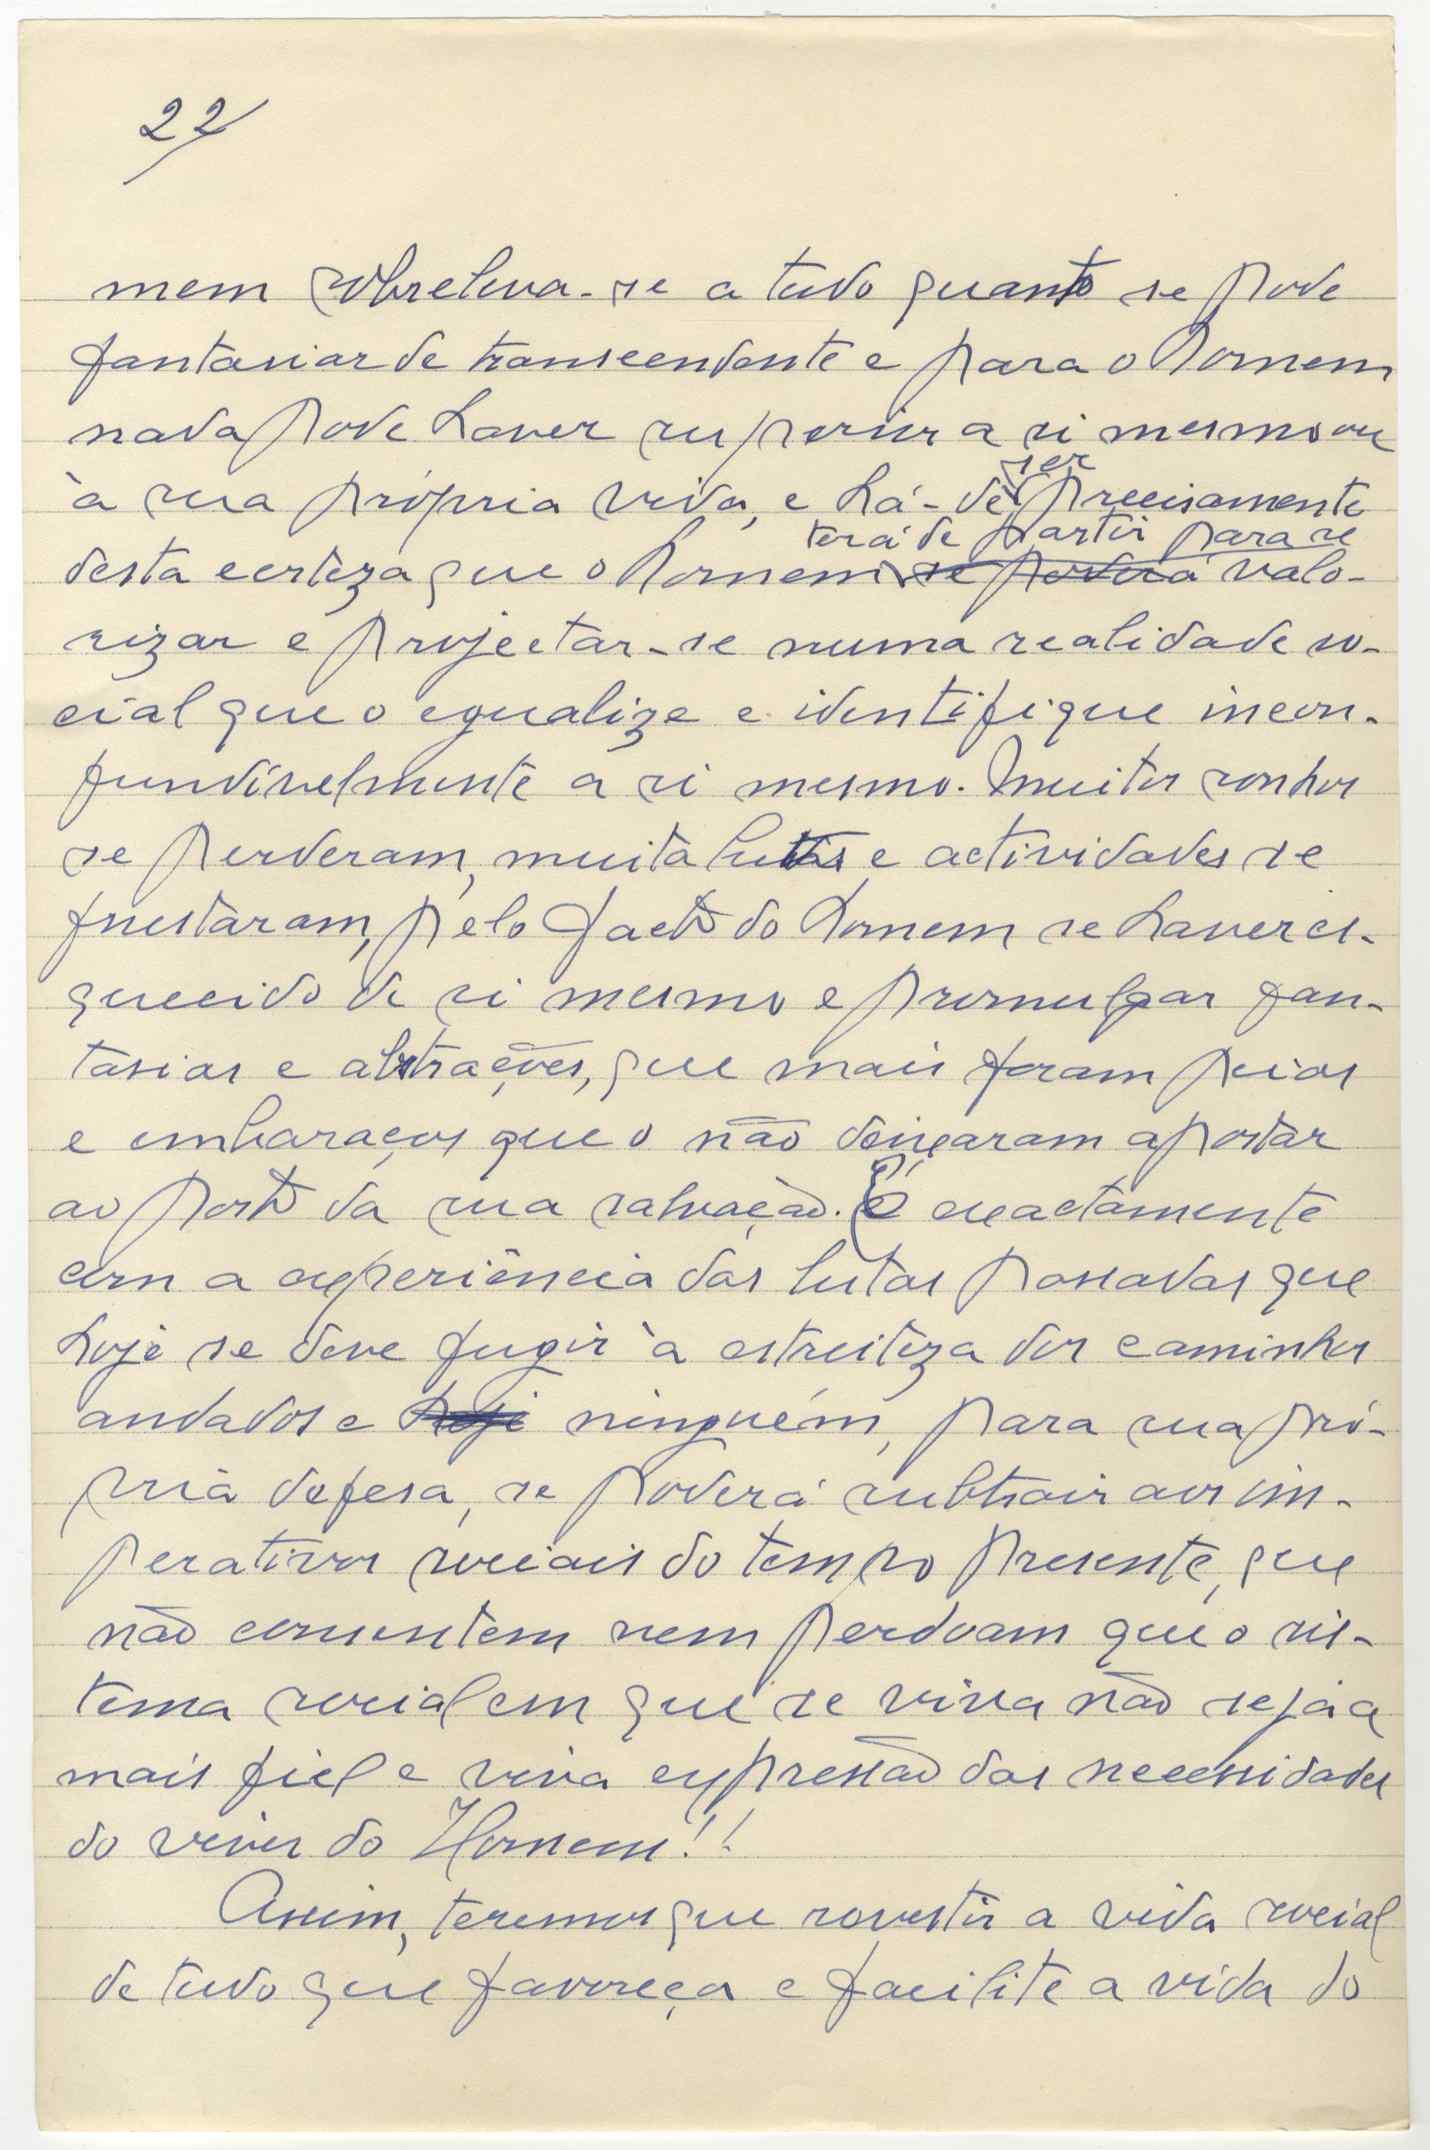 22
mem sobreleva-se a tudo quanto se pode
fantasiar de transcendente e para o homem
nada pode haver superior a si mesmo ou
à sua própria vida, e há-de ser precisamente
desta certeza que o homem se poderá terá de partir para se valo-
rizar e projectar-se numa realidade so-
cial que o egualize e identifique incon-
fundívelmente a si mesmo. Muitos sonhos
se perderam, muita lutas e actividades se
frustaram, pelo facto do homem se haver es-
quecido de si mesmo e promulgar fan-
tasias e abstrações, que mais foram peias
e embaraços que o não deixaram aportar
ao porto da sua salvação. É exactamente
com a experiência das lutas passadas que
hoje se deve fugir à estreiteza dos caminhos
andados e hoje ninguém, para sua pró-
pria defesa, se poderá subtrair aos im-
perativos sociais do tempo presente, que
não consentem nem perdoam que o sis-
tema social em que se viva não seja a
mais fiel e viva expressão das necessidades
do viver do Homem!!
Assim, teremos que revestir a vida social
de tudo que favoreça e facilite a vida do